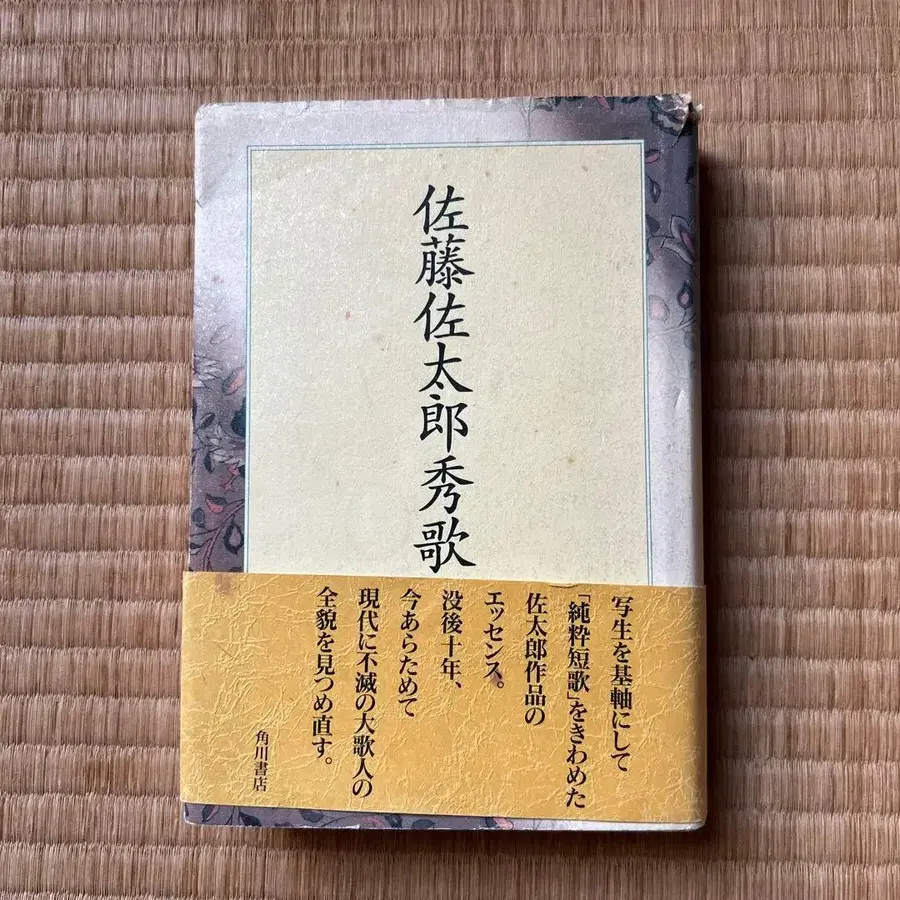 佐藤佐太郎秀歌
写生を基軸にして
「純粋短歌」をきわめた
佐太郎作品の
エッセンス。
没後十年、
今あらためて
現代に不滅の大歌人の
全貌を見つめ直す。
角川書店